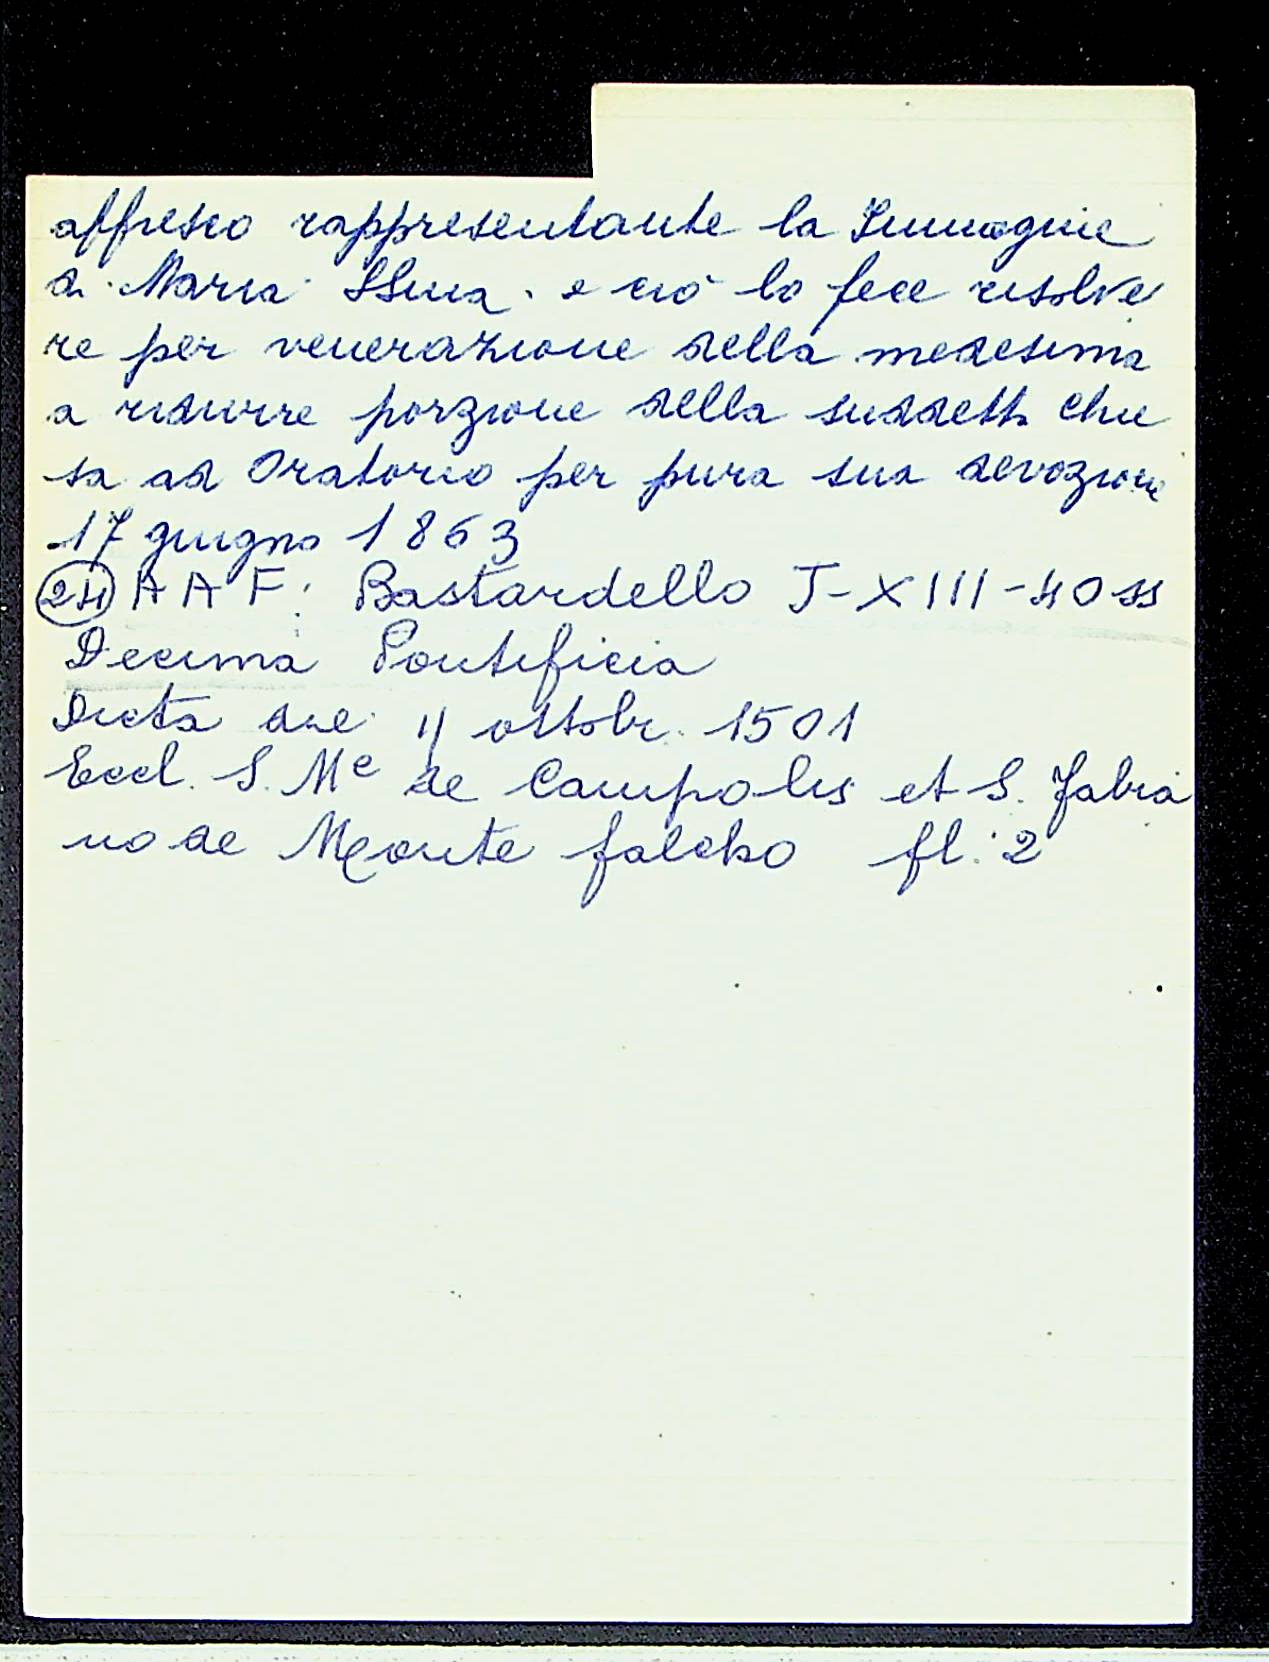 affresco rappresentante la Immagine
di Maria SSma. e ciò lo fece risolve
re per venerazione della medesima
a ridurre porzione della suddetta Chie
sa ad Oratorio per pura sua devozione
17 giugno 1863
24) A A F. Bastardello J-XIII-40 ss
Decima Pontificia
Dicta die 11 ottobr. 1501
Eccl. S. Me de Campolis et S. Fabia
no de Monte falcho fl. 2